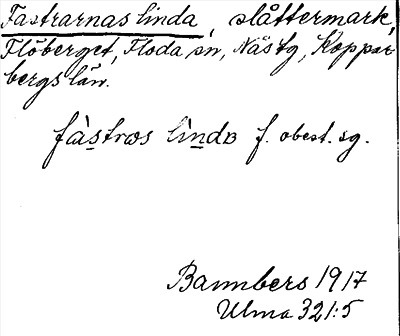 Fastrarnas linda, slåttermark,
Flöberget, Floda sn, Näs tg, Koppar
bergs län.
fàstros lìndα f. obest. sg.
Bannbers 1917
Ulma 321:5